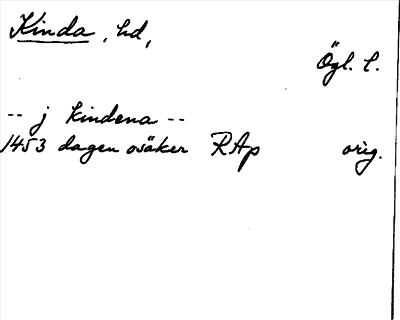 Kinda, hd,
Ögl. l.
-- j kindena --
1453 dagen osäker RAp orig.